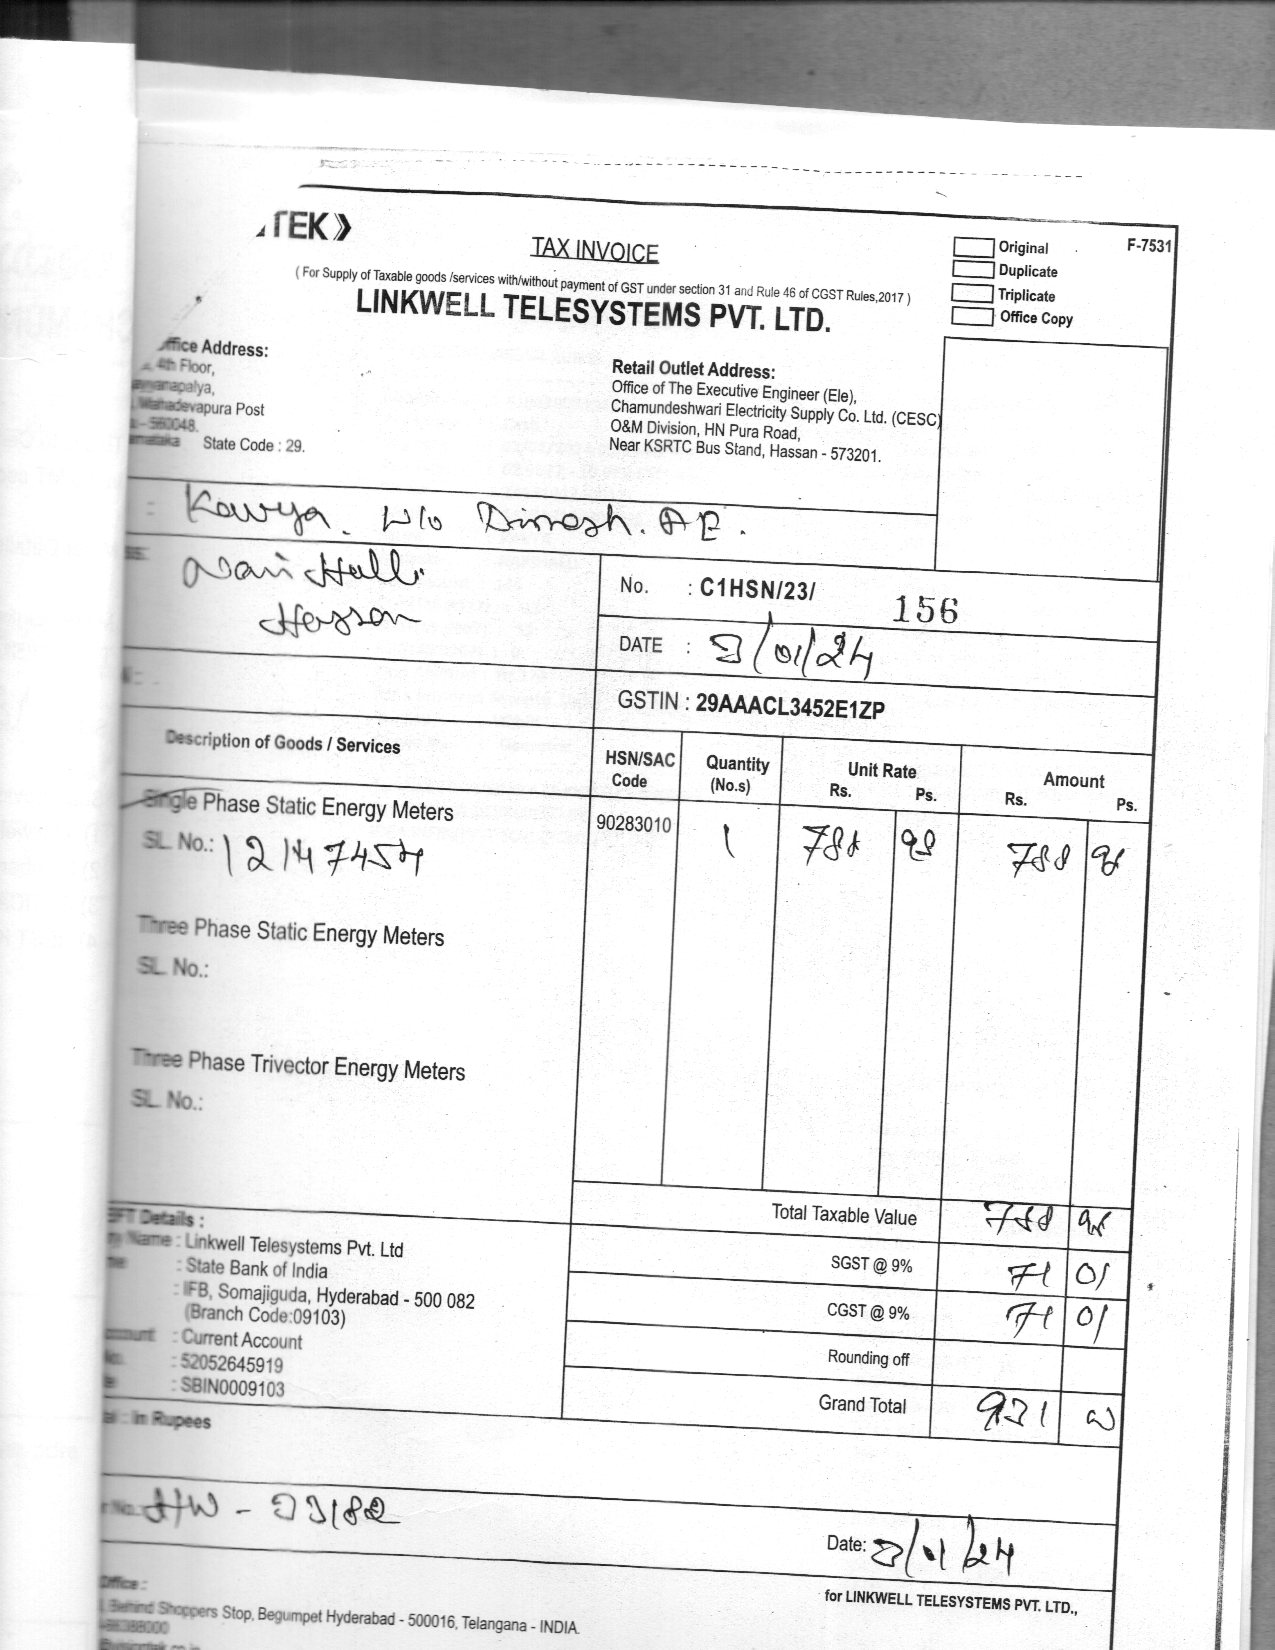 TEK
TAX INVOICE
( For Supply of Taxable goods /services with/without payment of GST under section 31 and Rule 46 of CGST Rules,2017 )
LINKWELL TELESYSTEMS PVT. LTD.
Original
Duplicate
Triplicate
Office Copy
F-7531
Address:
4th Floor,
Post
State Code : 29.
Retail Outlet Address:
Office of The Executive Engineer (Ele),
Chamundeshwari Electricity Supply Co. Ltd. (CESC)
O&M Division, HN Pura Road,
Near KSRTC Bus Stand, Hassan - 573201.
: Kavya. W/o Dinesh. AE.
Hassan
No. : C1HSN/23/ 156
DATE : /01/24
GSTIN : 29AAACL3452E1ZP
Description of Goods / Services
HSN/SAC Code
Quantity (No.s)
Unit Rate
Rs. Ps.
Amount
Rs. Ps.
Single Phase Static Energy Meters
90283010 1 788 98 788 98
SL. No.: 12147454
Three Phase Static Energy Meters
SL. No.:
Three Phase Trivector Energy Meters
SL. No.:
Total Taxable Value 788 98
SGST @ 9% 71 01
CGST @ 9% 71 01
Rounding off
Grand Total 931 00
Details :
Name : Linkwell Telesystems Pvt. Ltd
: State Bank of India
: IFB, Somajiguda, Hyderabad - 500 082
(Branch Code:09103)
: Current Account
: 52052645919
: SBIN0009103
: In Rupees
No.:
Date: /01/24
for LINKWELL TELESYSTEMS PVT. LTD.,
Office :
Behind Shoppers Stop, Begumpet Hyderabad - 500016, Telangana - INDIA.